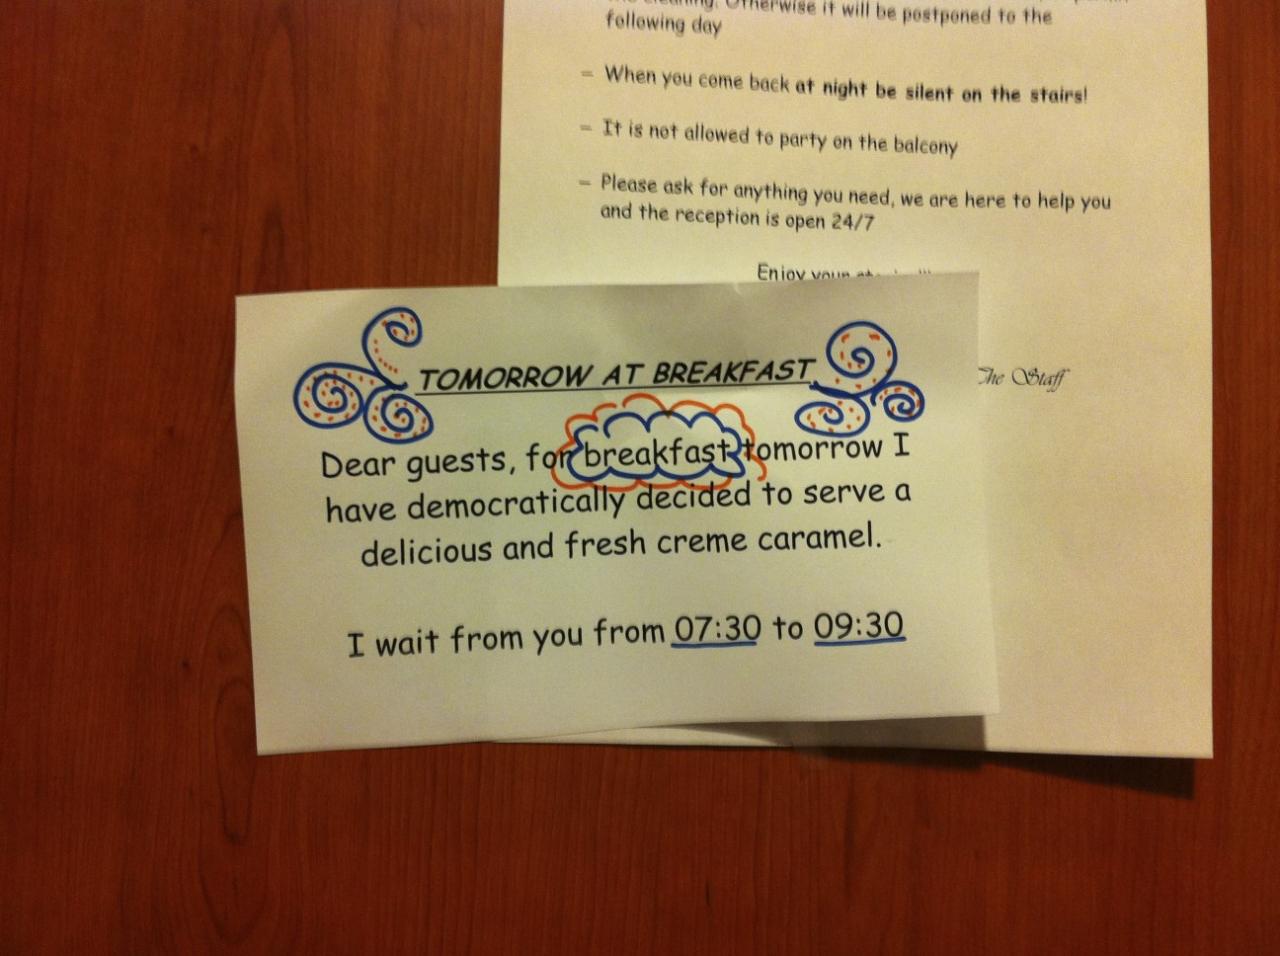 cleaning. Otherwise it will be postponed to the
following day
– When you come back at night be silent on the stairs!
– It is not allowed to party on the balcony
– Please ask for anything you need, we are here to help you
and the reception is open 24/7
Enjoy your
The Staff
TOMORROW AT BREAKFAST
Dear guests, for breakfast tomorrow I
have democratically decided to serve a
delicious and fresh creme caramel.
I wait from you from 07:30 to 09:30